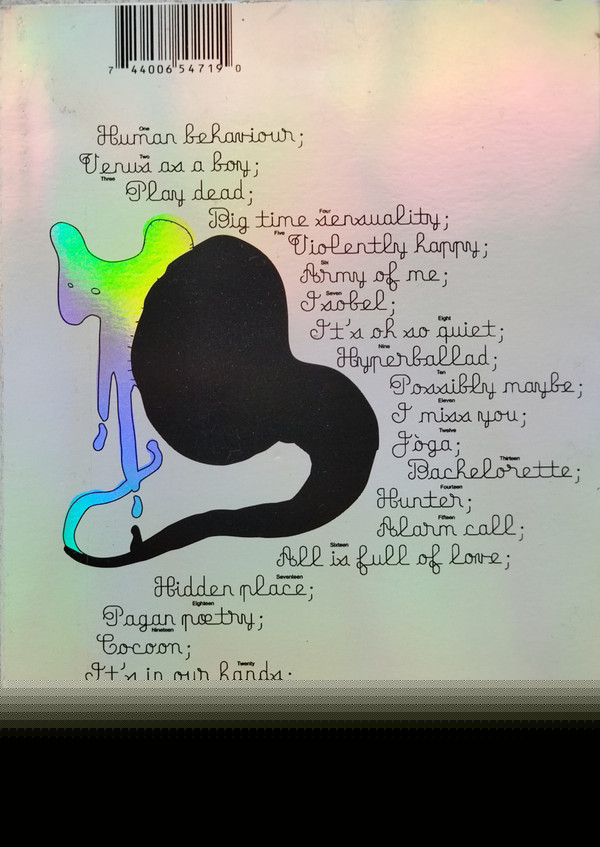 7 44006 54719 0
One
Human behaviour;
Two
Venus as a boy;
Three
Play dead;
Four
Big time sensuality;
Five
Violently happy;
Six
Army of me;
Seven
Isobel;
Eight
It's oh so quiet;
Nine
Hyperballad;
Ten
Possibly maybe;
Eleven
I miss you;
Twelve
Jòga;
Thirteen
Bachelorette;
Fourteen
Hunter;
Fifteen
Alarm call;
Sixteen
All is full of love;
Seventeen
Hidden place;
Eighteen
Pagan poetry;
Nineteen
Cocoon;
Twenty
It's in our hands;